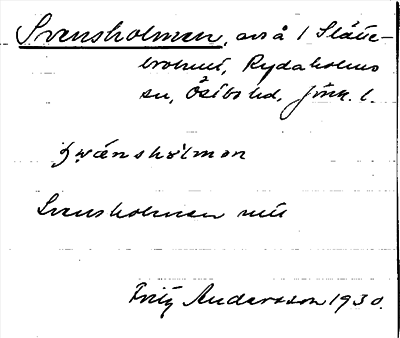 Svensholmen, avs å 1 Slätte-
Rydaholms
sn, Östbo hd, Jönk. l.
svänshòlmən
Svensholmen
Fritz Andersson 1930.